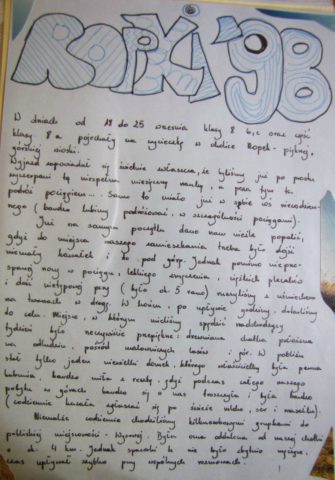 ROPKI '98
W dniach od 18 do 25 września klasy 8 b, c oraz część
klasy 8 a pojechały na wycieczkę w okolice Ropek - pięknej,
górskiej wioski.
Wyjazd zapowiadał się świetnie właszcza, że byliśmy już po prostu
wyczerpani tą niespełna miesięczną nauką, a poza tym ta
podróż pociągiem... Samo to miało już w sobie coś niecodzien-
nego (bardzo lubimy podróżować, w szczególności pociągami).
Już na samym początku dano nam nieźle popalić,
gdyż do miejsca naszego zamieszkania trzeba było dojść
niemały kawałek i to pod górę. Jednak pomimo nieprze-
spanej nocy w pociągu, lekkiego zmęczenia, ciężkich plecaków
i dość nietypowej pory (było ok. 5 rano) ruszyliśmy z uśmiechem
na twarzach w drogę. W końcu, po upływie godziny, dotarliśmy
do celu. Miejsce, w którym mieliśmy spędzić nadchodzący
tydzień było rzeczywiście przepiękne: drewniana chatka położona
na odludziu, pośród malowniczych lasów i gór. W pobliżu
stał tylko jeden niewielki domek, którego właścicielką była pewna
babunia, bardzo miła z resztą, gdyż podczas całego naszego
pobytu w górach bardzo się o nas troszczyła i była bardzo
(codziennie kazała zgłaszać się po świeże mleko, ser i masełko).
Niemalże codziennie chodziliśmy kilkuosobowymi grupkami do
pobliskiej miejscowości - Wysowej. Była ona oddalona od naszej chatki
o ok. 4 km. Jednak spacerki te nie były zbytnio męczące,
czas upływał szybko przy wspólnych rozmowach.